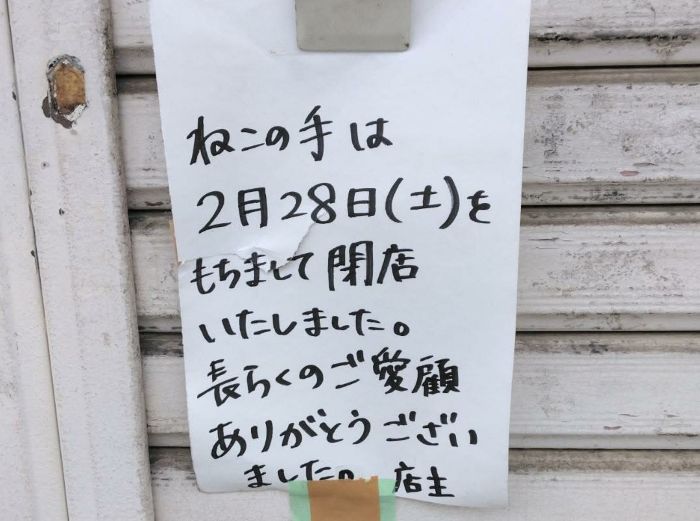 ねこの手は
2月28日(土)を
もちまして閉店
いたしました。
長らくのご愛顧
ありがとうござい
ました。店主